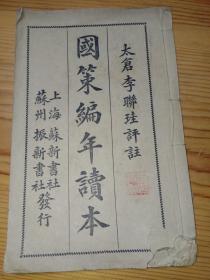 太倉李聯珪評註
國策編年讀本
上海蘇新書社
蘇州振新書社發行